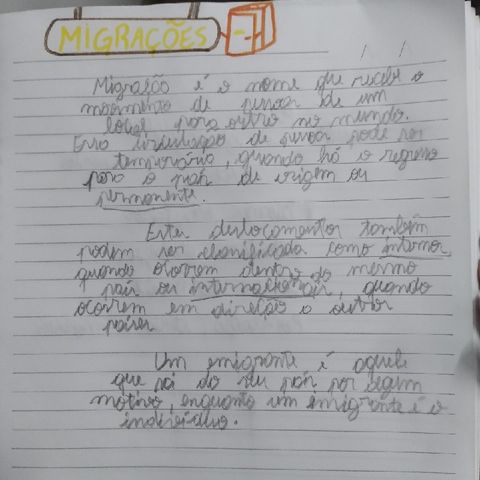 MIGRAÇÕES
Migração é o nome que recebe o
movimento de pessoas de um
local para outro no mundo.
Essa circulação de pessoas pode ser
temporária, quando há o regresso
para o país de origem ou
permanente.
Estes deslocamentos também
podem ser classificada como internos,
quando ocorrem dentro do mesmo
país ou internacionais, quando
ocorrem em direção a outros
países
Um emigrante é aquele
que sai do seu país por algum
motivo, enquanto um emigrante é o
indivíduo.